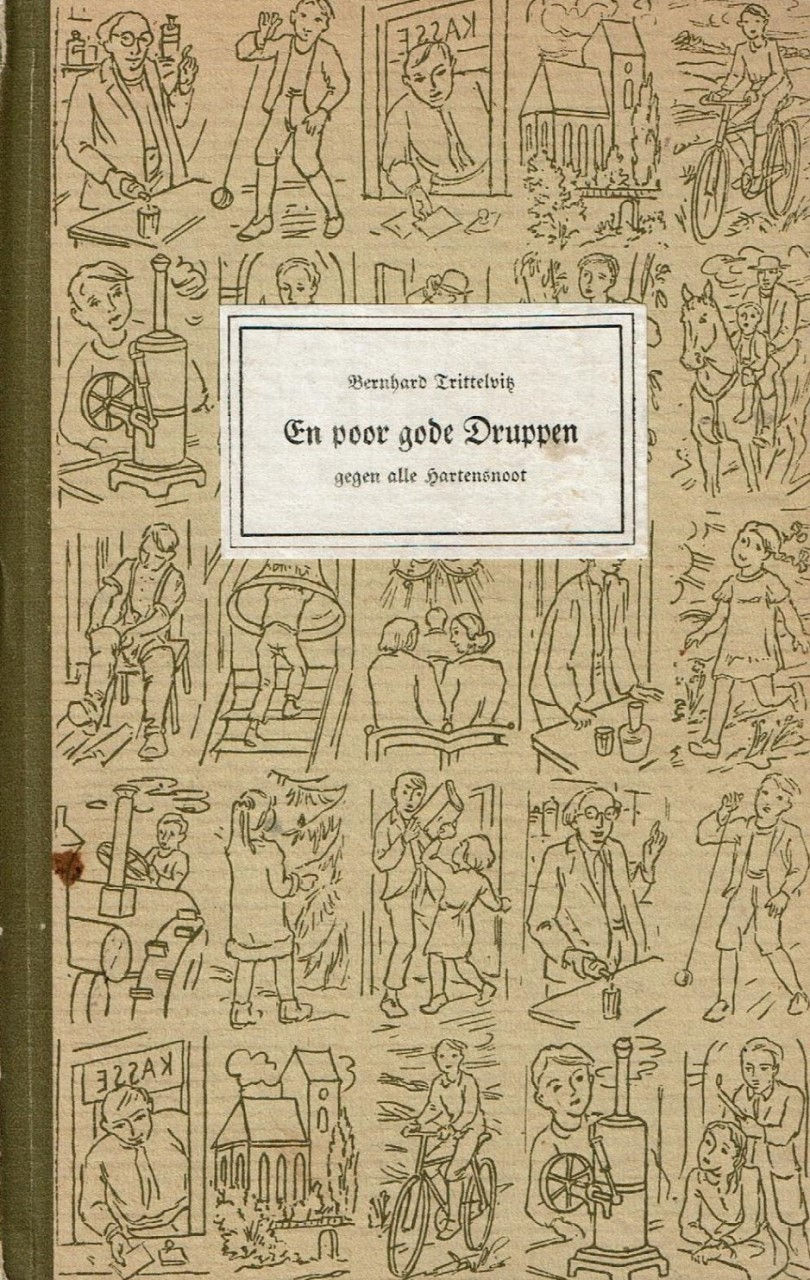 KASSE
Bernhard Trittelvitz
En poor gode Druppen
gegen alle Hartensnoot
KASSE